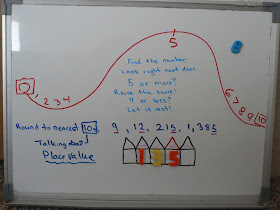 5
Find the number,
Look right next door,
5 or more?
Raise the score!
4 or less?
Let it rest!
0, 1, 2 3 4
6 7 8 9 10
Round to nearest 10s
9, 12, 215, 1,385
Talking about
Place Value
1 3 5